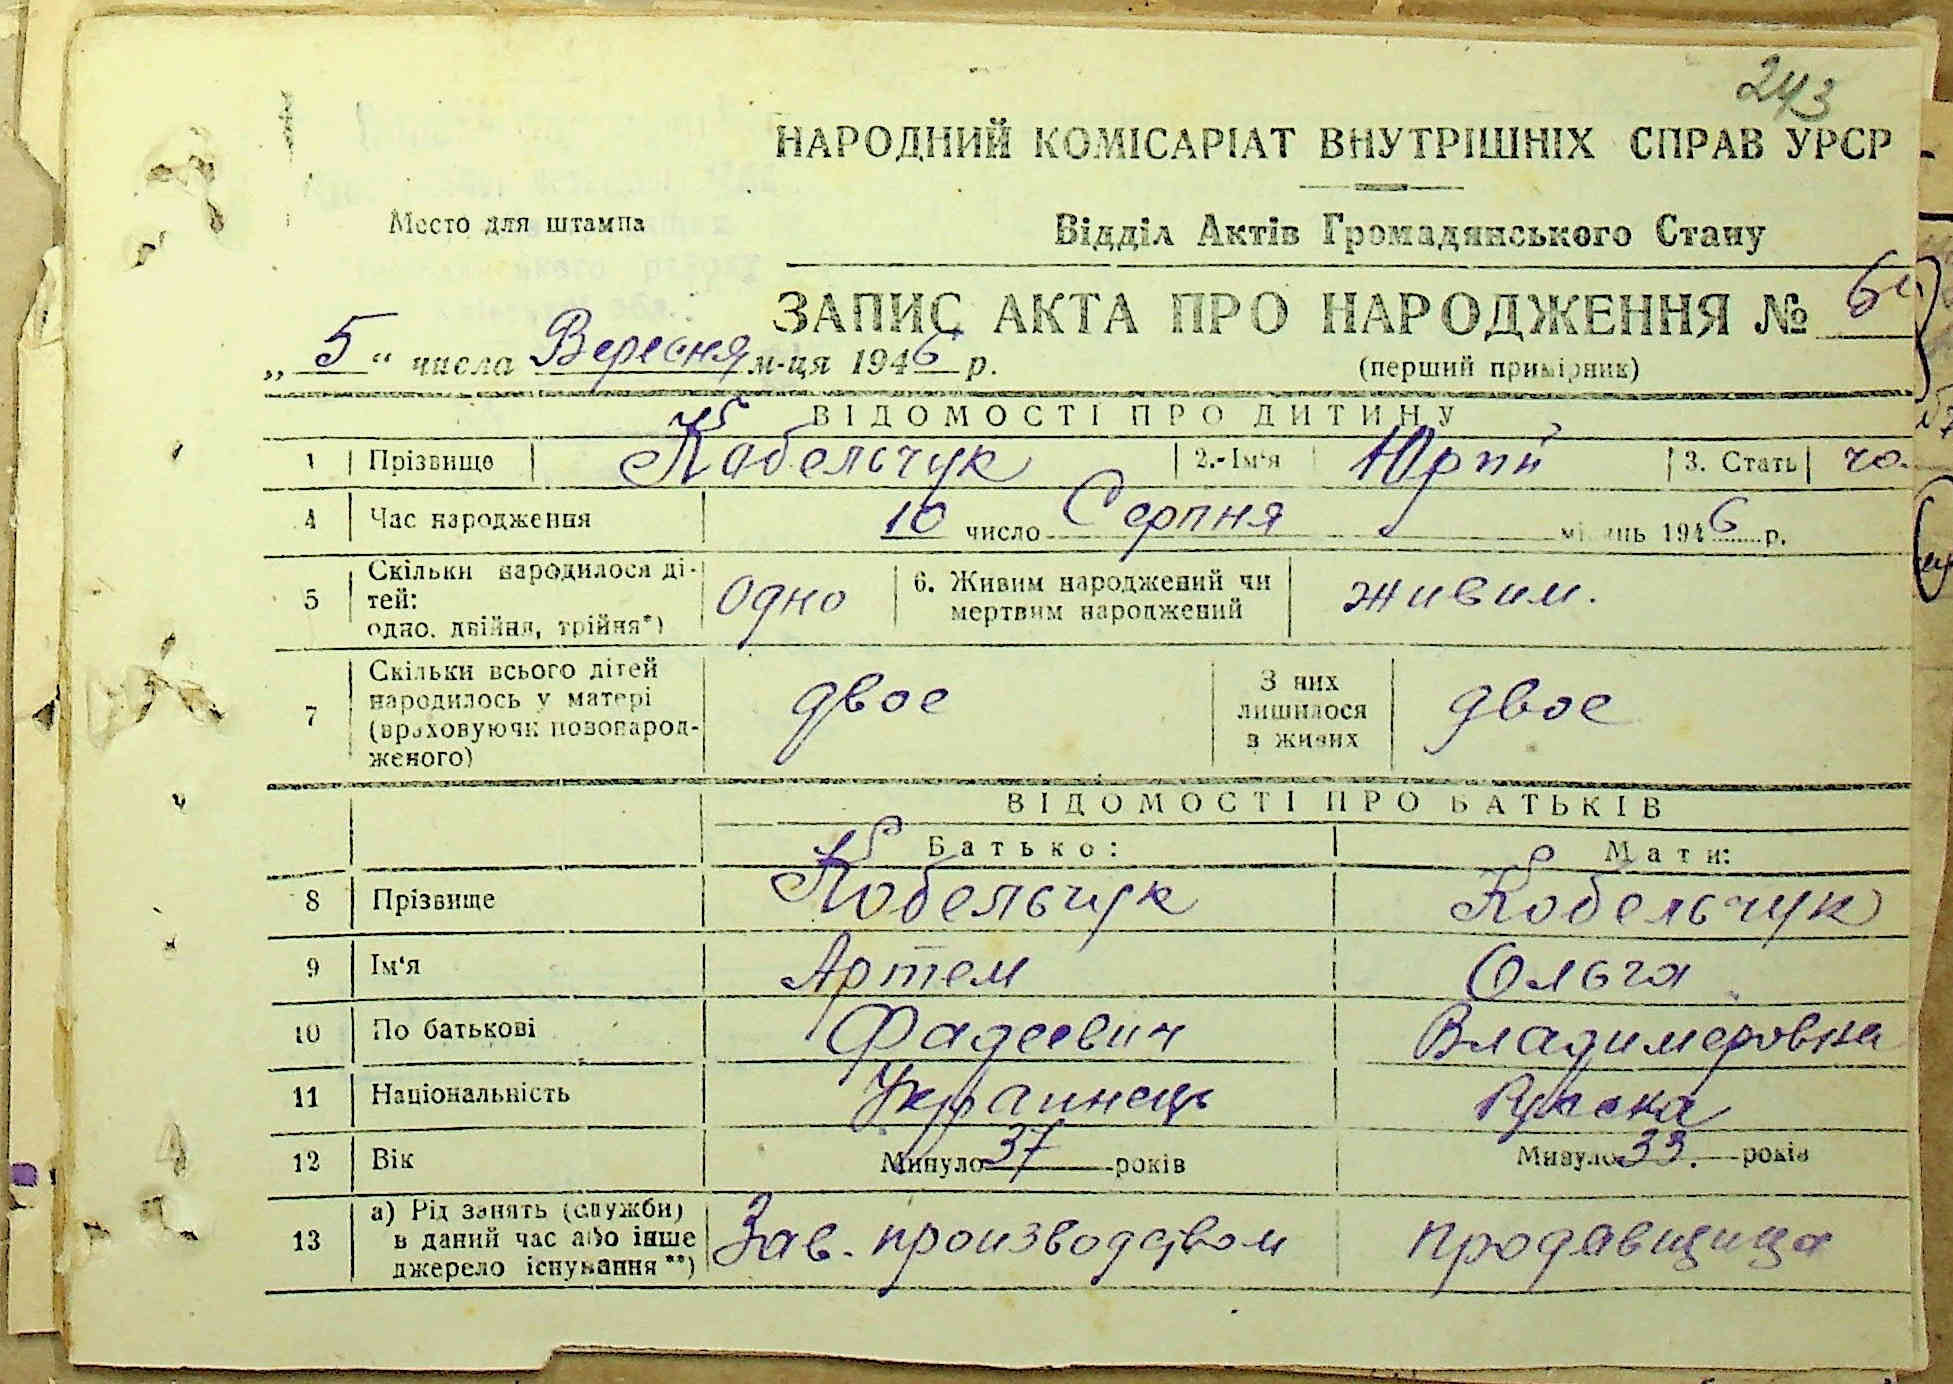 243
НАРОДНИЙ КОМІСАРІАТ ВНУТРІШНІХ СПРАВ УРСР
Место для штампа
Відділ Актів Громадянського Стану
ЗАПИС АКТА ПРО НАРОДЖЕННЯ №
„ 5 “ числа Вересня м-ця 1946 р.
(перший примірник)
ВІДОМОСТІ ПРО ДИТИНУ
1 Прізвище Кабельчук 2.-Ім‘я Юрій 3. Стать чо.
4 Час народження 10 число Серпня місяць 1946 р.
5 Скільки народилося ді-
тей:
одно, двійня, трійня*) одно 6. Живим народжений чи
мертвим народжений живим.
7 Скільки всього дітей
народилось у матері
(враховуючи новонарод-
женого) двое З них
лишилося
в живих двое
ВІДОМОСТІ ПРО БАТЬКІВ
Батько: Мати:
8 Прізвище Кобельчук Кобельчук
9 Ім‘я Артем Ольга
10 По батькові Фадеевич Владимеровна
11 Національність Украинець Руска
12 Вік Минуло 37 років Минуло 33. років
13 а) Рід занять (служби)
в даний час або інше
джерело існування **) Зав. производством продавщица